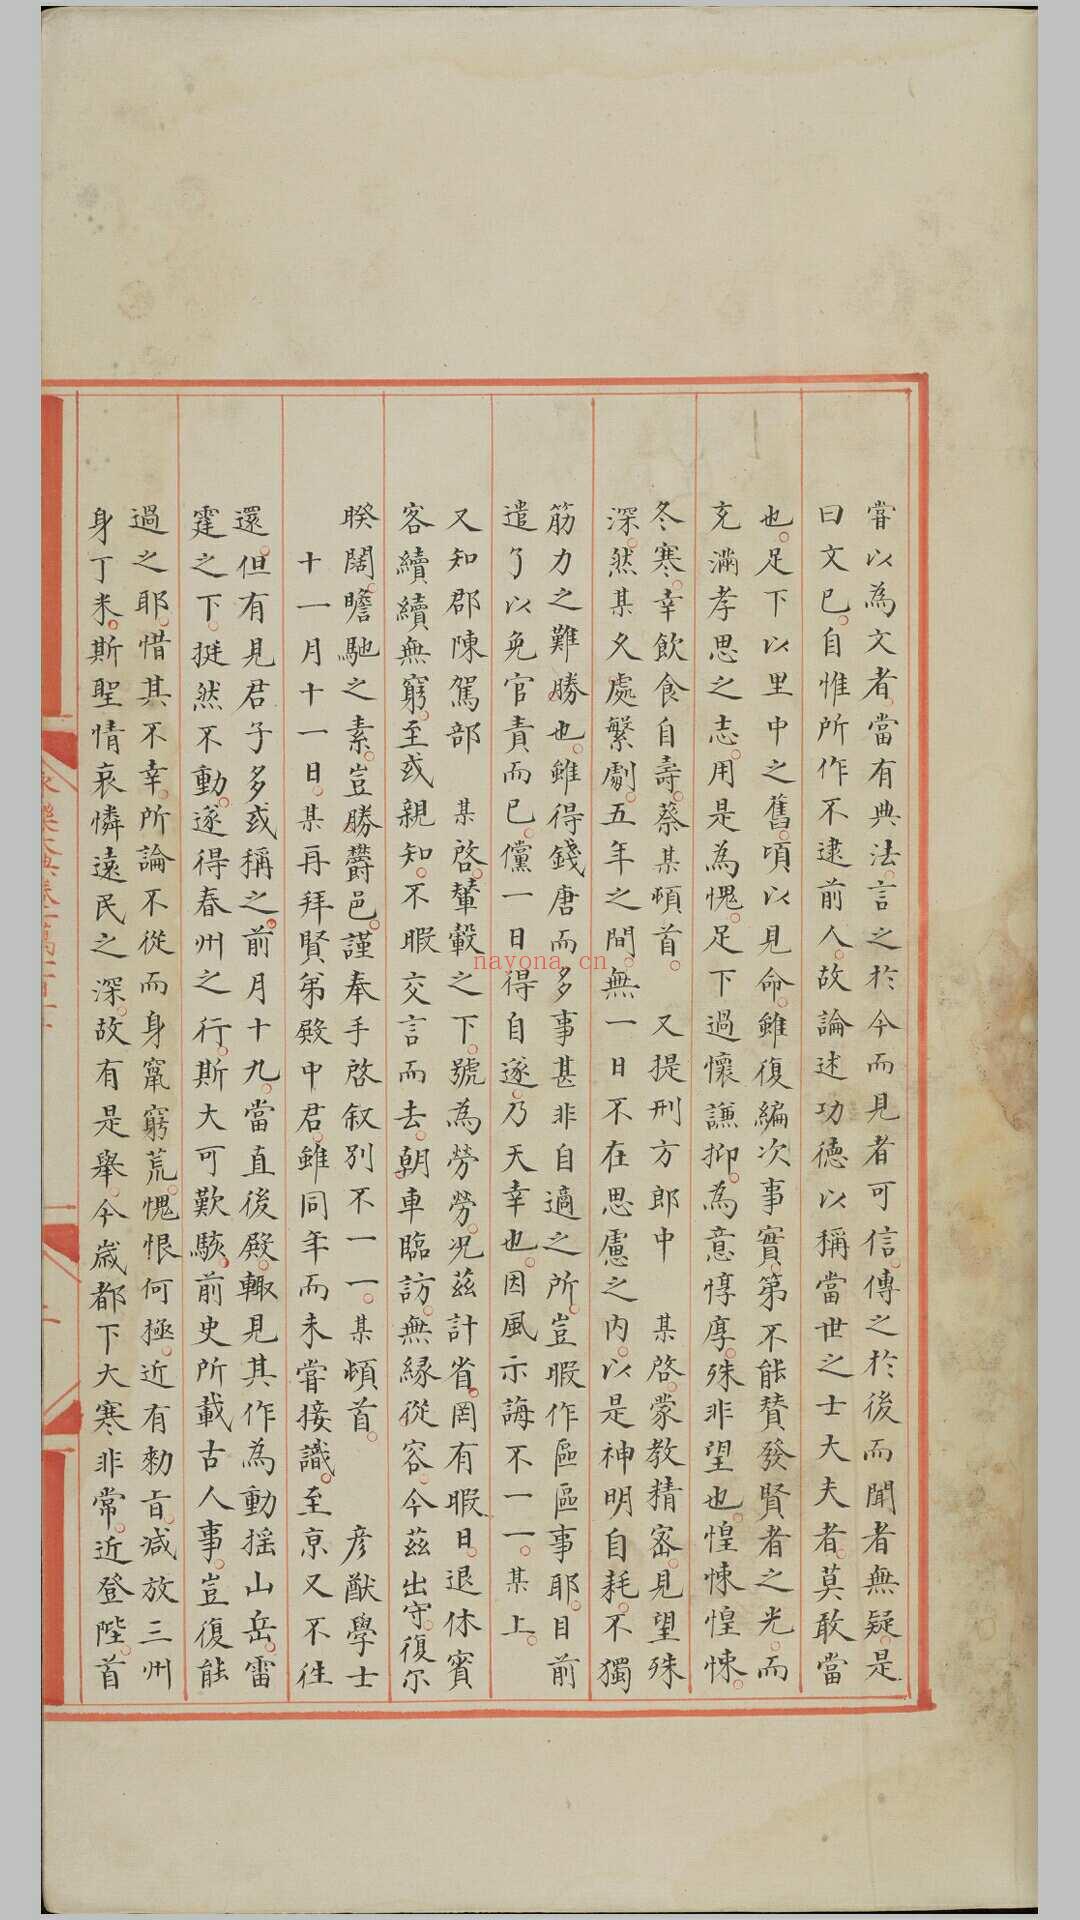 嘗以為文者當有典法言之於今而見者可信傳之於後而聞者無疑是
曰文已自惟所作不逮前人故論述功德以稱當世之士大夫者莫敢當
也足下以里中之舊頃以見命雖復編次事實第不能賛發賢者之光而
充滿孝思之志用是為愧足下過懷謙抑為意惇厚殊非望也惶悚惶悚
冬寒幸飲食自壽蔡某頓首 又提刑方郎中 某啓蒙教精宻見望殊
深然某久處繁劇五年之間無一日不在思慮之内以是神明自耗不獨
筋力之難勝也雖得錢唐而多事甚非自適之所豈暇作區區事耶目前
遣了以免官責而已儻一日得自遂乃天幸也因風示誨不一一某上
又知郡陳駕部 某啓輦轂之下號為勞勞况茲計省罔有暇日退休賓
客續續無窮至或親知不暇交言而去朝車臨訪無縁從容今茲出守復尔
睽闊瞻馳之素豈勝欝邑謹奉手啓叙別不一一某頓首 彦猷學士
十一月十一日某再拜賢弟殿中君雖同年而未嘗接識至京又不徃
還但有見君子多或稱之前月十九當直後殿輙見其作為動揺山岳雷
霆之下挺然不動遂得春州之行斯大可歎駭前史所載古人事豈復能
過之耶惜其不幸所論不從而身竄窮荒愧恨何極近有勑㫖减放三州
身丁米斯聖情哀憐遠民之深故有是舉今歳都下大寒非常近登陛首
nayona.cn